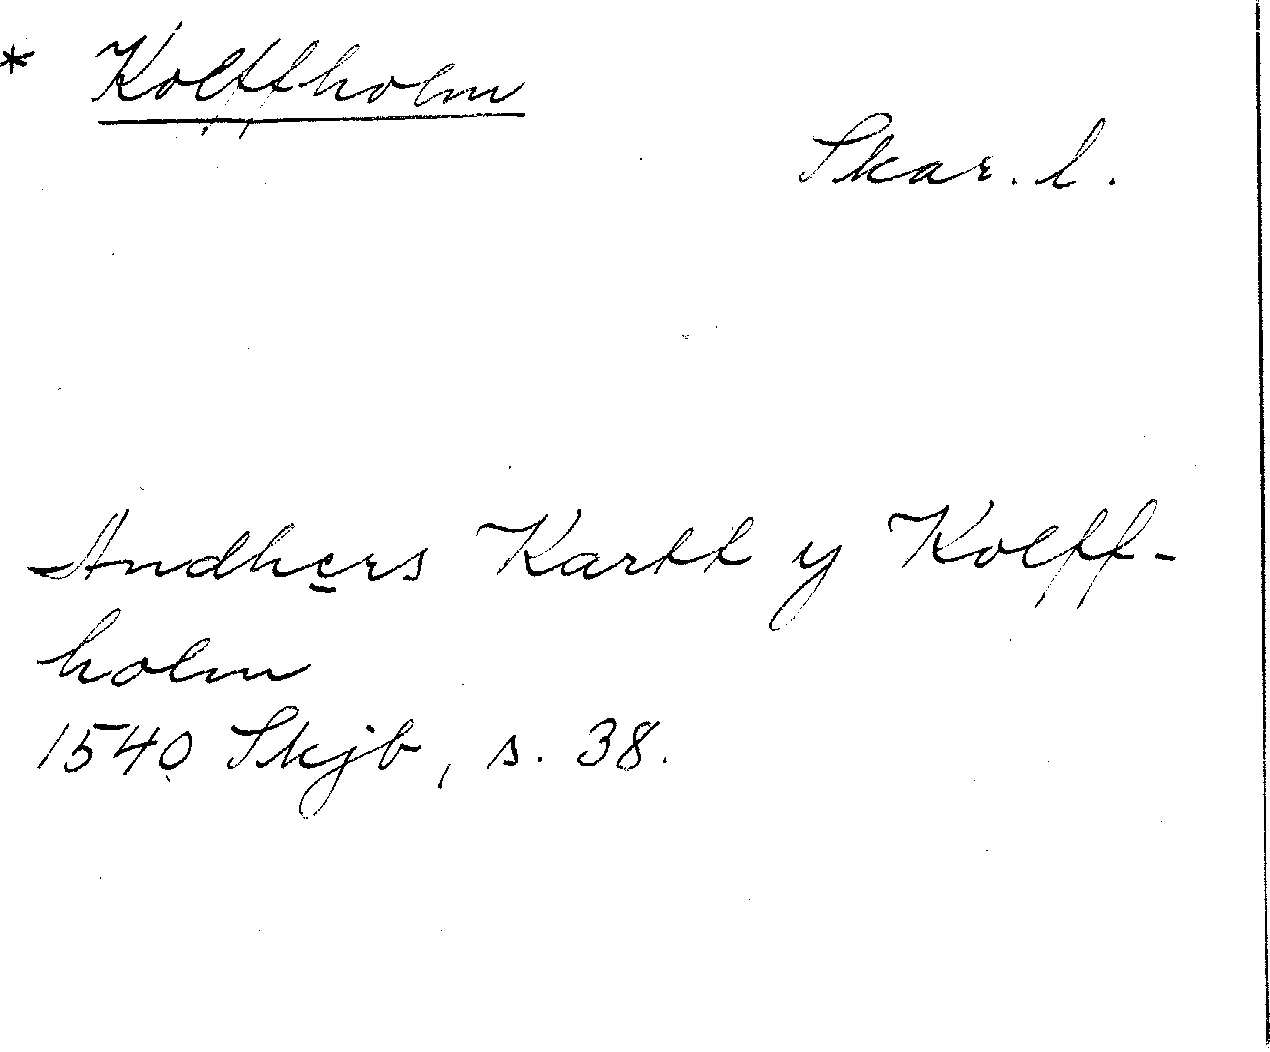 * Kolffholm
Skar. l.
Andhers Kartt y Kolff-
holm
1540 Skjb, s. 38.